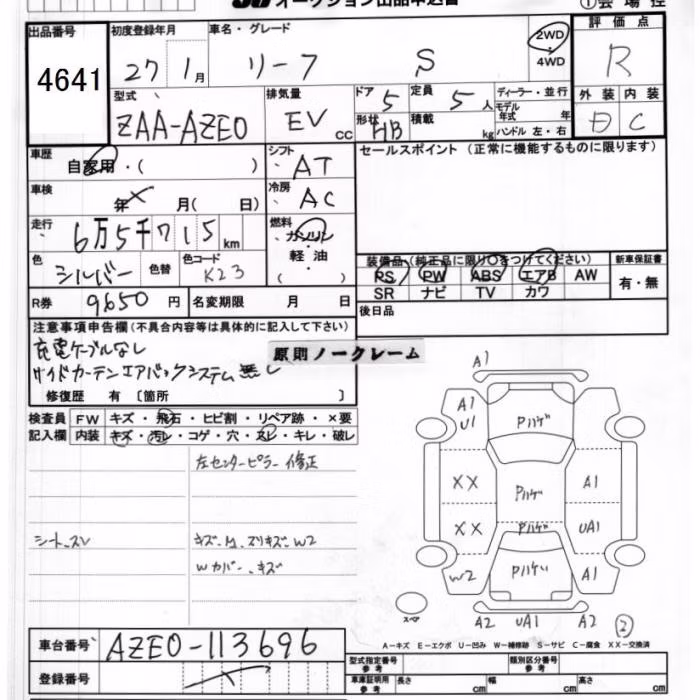 オークション出品申込書 ①会場控
出品番号 4641
初度登録年月 27 1月
車名・グレード リーフ S
2WD・4WD
評価点 R
型式 ZAA-AZE0
排気量 EV CC
ドア 5 形状 HB
定員 5人 積載 kg
ディーラー・並行
モデル年式 年
ハンドル 左・右
外装 内装
D C
車歴 自家用・( )
シフト AT
セールスポイント (正常に機能するものに限ります)
車検 年 月( 日)
冷房 AC
走行 6万5千715km
燃料 ガソリン
軽・油
・( )
色 シルバー 色替 色コード K23
装備品 (純正品に限り○をつけてください) 新車保証書
PS PW ABS エアB AW 有・無
SR ナビ TV カワ
R券 9650円 名変期限 月 日
後日品
注意事項申告欄(不具合内容等は具体的に記入して下さい)
充電ケーブルなし
原則ノークレーム
サイドカーテンエアバックシステム無し
修復歴 有〔箇所 〕
検査員 FW キズ・飛石・ヒビ割・リペア跡・×要
記入欄 内装 キズ・汚レ・コゲ・穴・スレ・キレ・破レ
左センターピラー修正
シート、スレ
キズ、凹、スリキズ、W2
Wカバー、キズ
A1
A1
U1
Pハゲ
XX Pハゲ A1
XX Pハゲ UA1
W2 Pハゲ A1
スペア
A2 UA1 A2 ②
A-キズ E-エクボ U-凹み W-補修跡 S-サビ C-腐食 XX-交換済
車台番号 AZE0-113696
登録番号
型式指定番号 参考 類別区分番号 参考
車庫証明用 参考 長さ cm 幅 cm 高さ cm